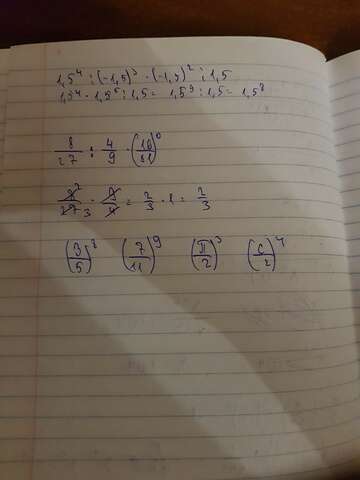 1,5⁴ : (-1,5)³ · (-1,5)² : 1,5
1,5⁴ · 1,5⁵ : 1,5 = 1,5⁹ : 1,5 = 1,5⁸
8/27 : 4/9 · (18/81)⁰
8²/27₃ · 9/4 = 2/3 · 1 = 2/3
(3/5)⁸ (7/11)⁹ (π/2)³ (c/2)⁴